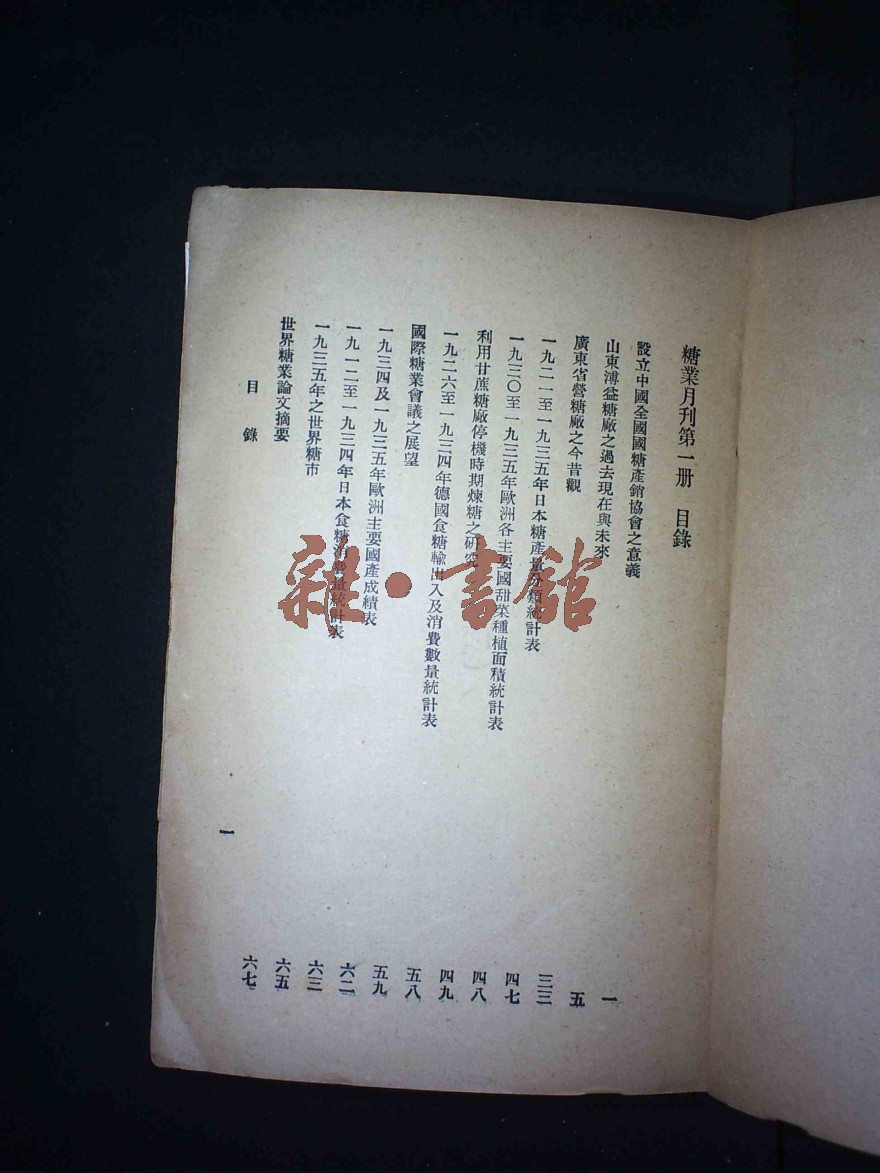 糖業月刊第一册 目錄
設立中國全國國糖產銷協會之意義 一
山東溥益糖廠之過去現在與未來 五
廣東省營糖廠之今昔觀 三三
一九二一至一九三五年日本糖產量分類統計表 四七
一九三〇至一九三五年歐洲各主要國甜菜種植面積統計表 四八
利用甘蔗糖廠停機時期煉糖之研究 四九
一九二六至一九三四年德國食糖輸出入及消費數量統計表 五八
國際糖業會議之展望 五九
一九三四及一九三五年歐洲主要國產成績表 六二
一九一二至一九三四年日本食糖消費量統計表 六三
一九三五年之世界糖市 六五
世界糖業論文摘要 六七
目錄
一
雜·書館